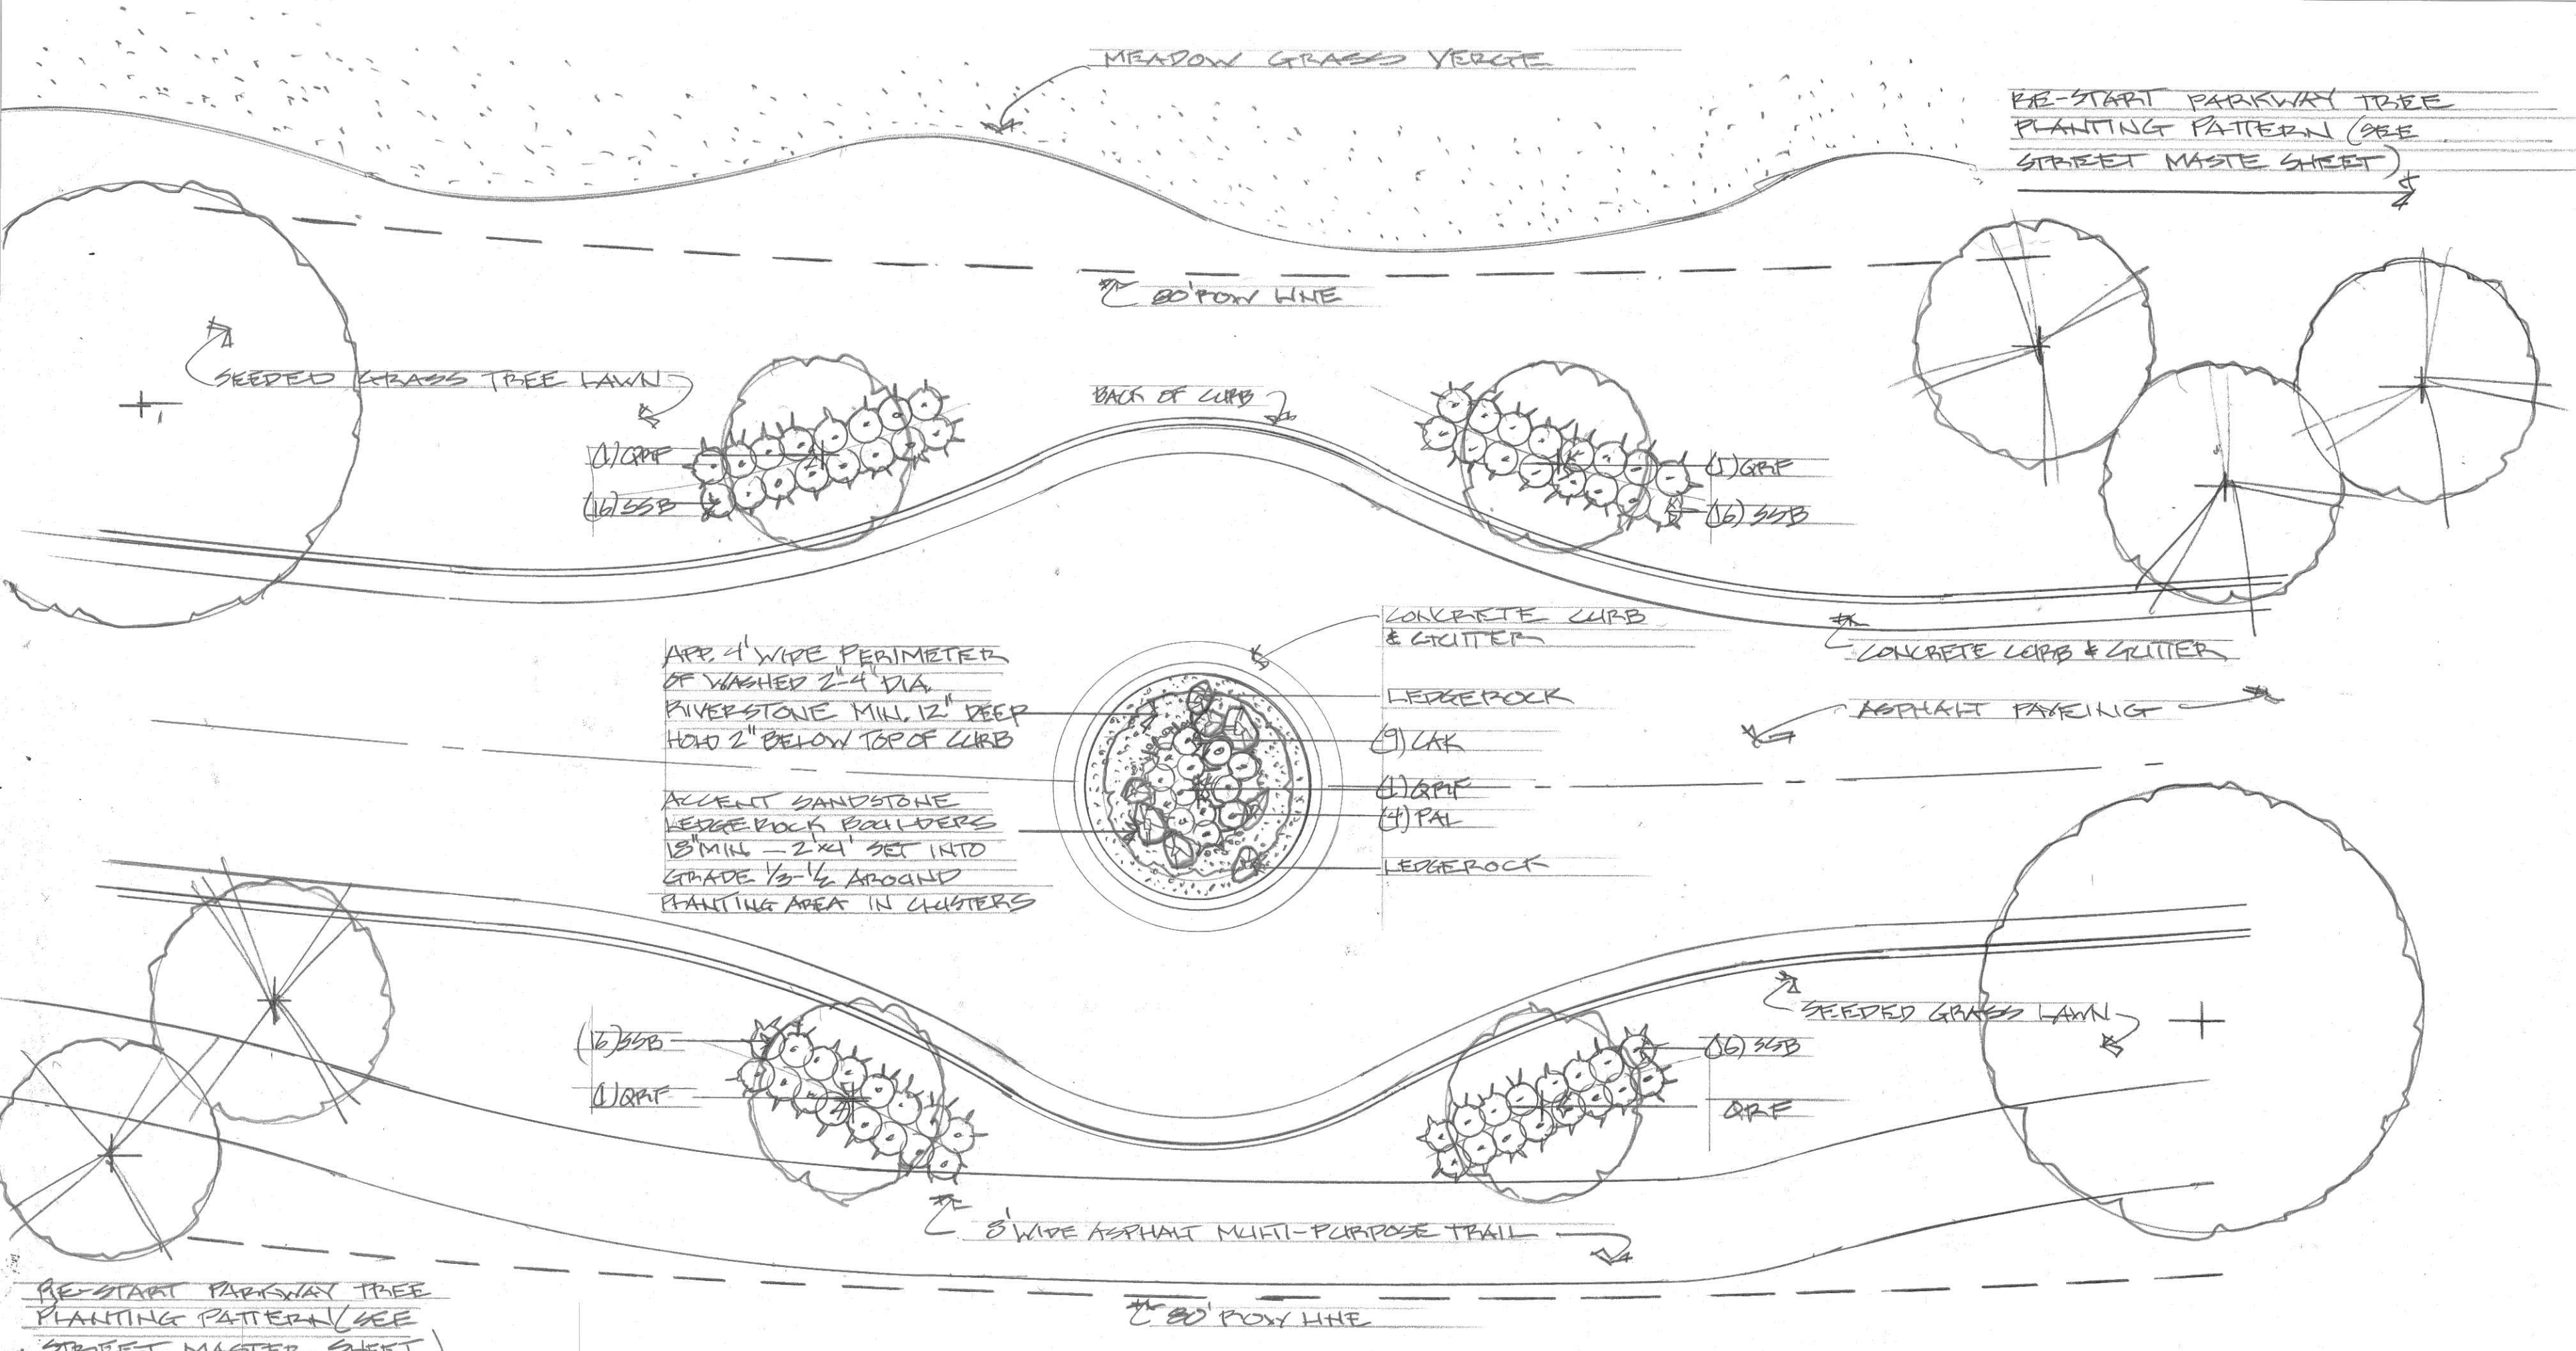 MEADOW GRASS VERGE
RE-START PARKWAY TREE
PLANTING PATTERN (SEE
STREET MASTE SHEET)
80' ROW LINE
SEEDED GRASS TREE LAWN
BACK OF CURB
(1) QRF
(16) SSB
(1) QRF
(16) SSB
CONCRETE CURB
& GUTTER
CONCRETE CURB & GUTTER
APP. 4' WIDE PERIMETER
OF WASHED 2"-4" DIA.
RIVERSTONE MIN. 12" DEEP
HOLD 2" BELOW TOP OF CURB
LEDGEROCK
ASPHALT PAVEING
(9) CAK
(1) QRF
(4) PAL
LEDGEROCK
ACCENT SANDSTONE
LEDGEROCK BOULDERS
18" MIN - 2'x4' SET INTO
GRADE 1/3-1/2 AROUND
PLANTING AREA IN CLUSTERS
SEEDED GRASS LAWN
(16) SSB
(1) QRF
(16) SSB
QRF
8' WIDE ASPHALT MULTI-PURPOSE TRAIL
80' ROW LINE
RE-START PARKWAY TREE
PLANTING PATTERN (SEE
STREET MASTER SHEET)